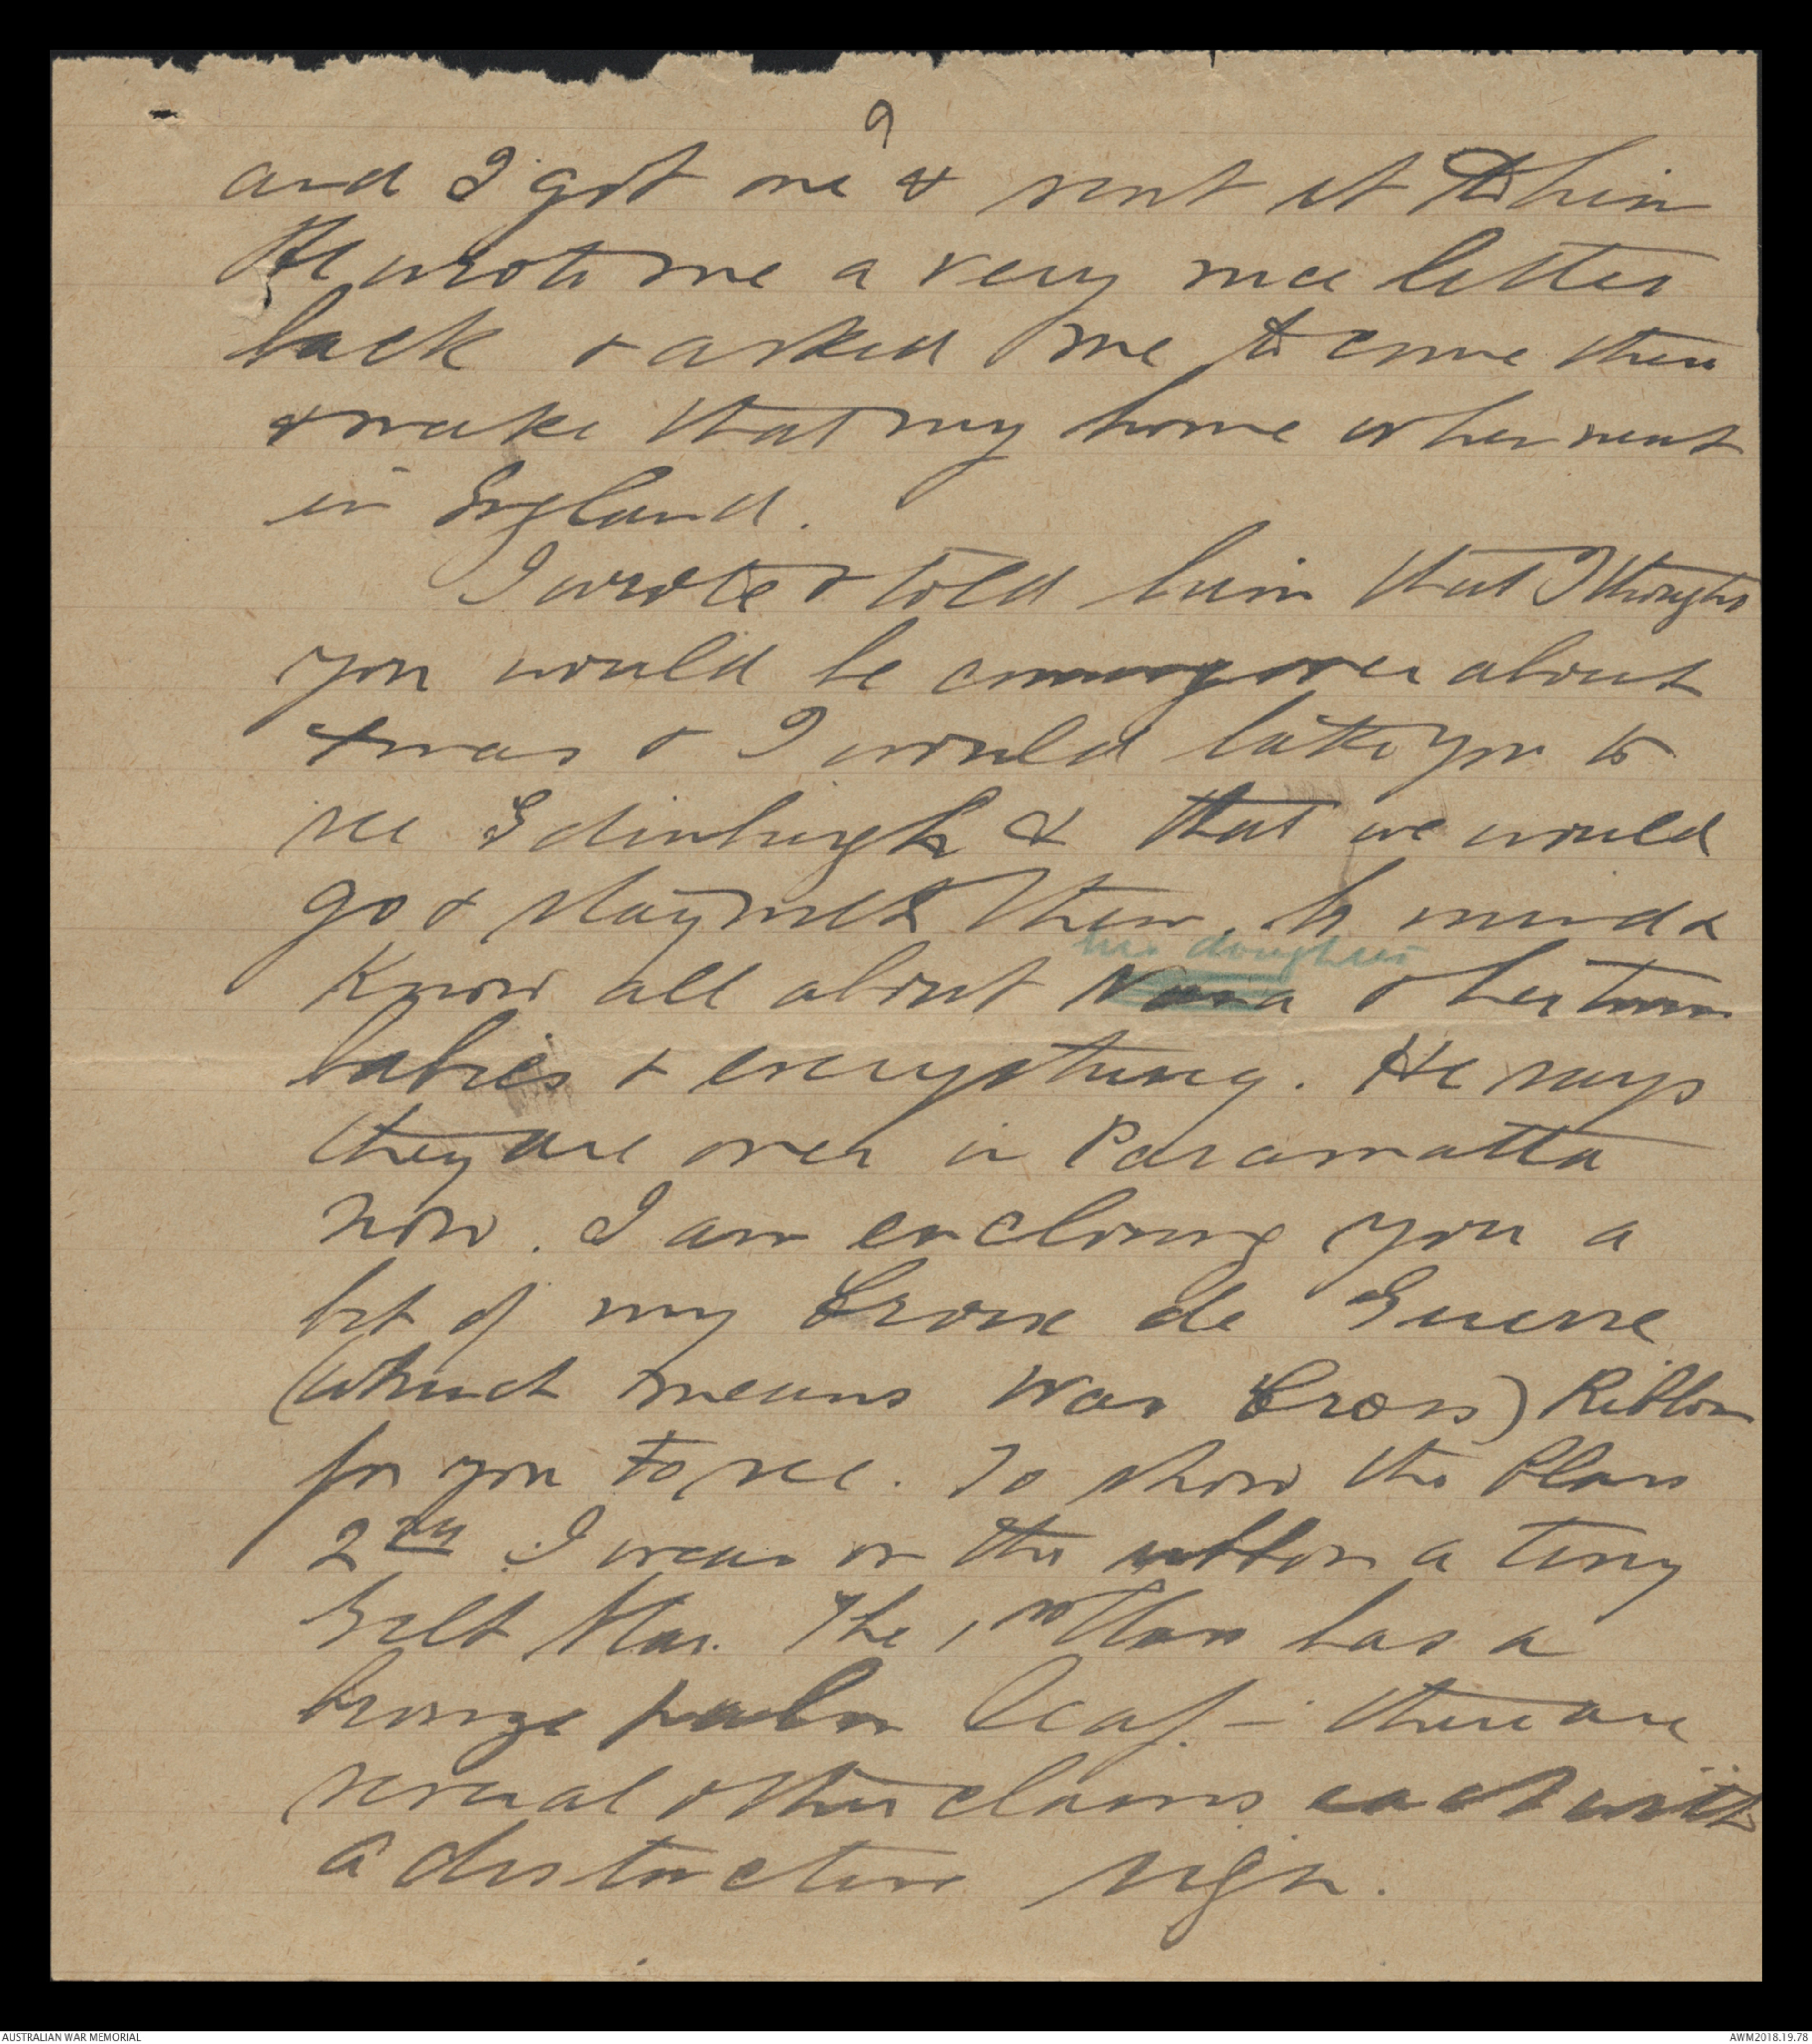 9
and I got one & sent it to him
He wrote me a very nice letter
back & asked me to come there
& make that my home when next
in England.
I wrote & told him that I thought
you would be coming over about
Xmas & I would like you to
see Edinburgh & that we would
go & stay with them. &
his daughter
Know all about Nana & her twin
babies & everything. He says
they are over in Paramatta
now. I am enclosing you a
bit of my Croix de Guerre
(which means War Cross) Ribbon
for you to see. To show the Class
2nd I wear on the ribbon a tiny
Gilt Star. The 1st Class has a
bronze palm leaf - there are
several other classes each with
a distinctive sign.
AUSTRALIAN WAR MEMORIAL
AWM2018.19.78